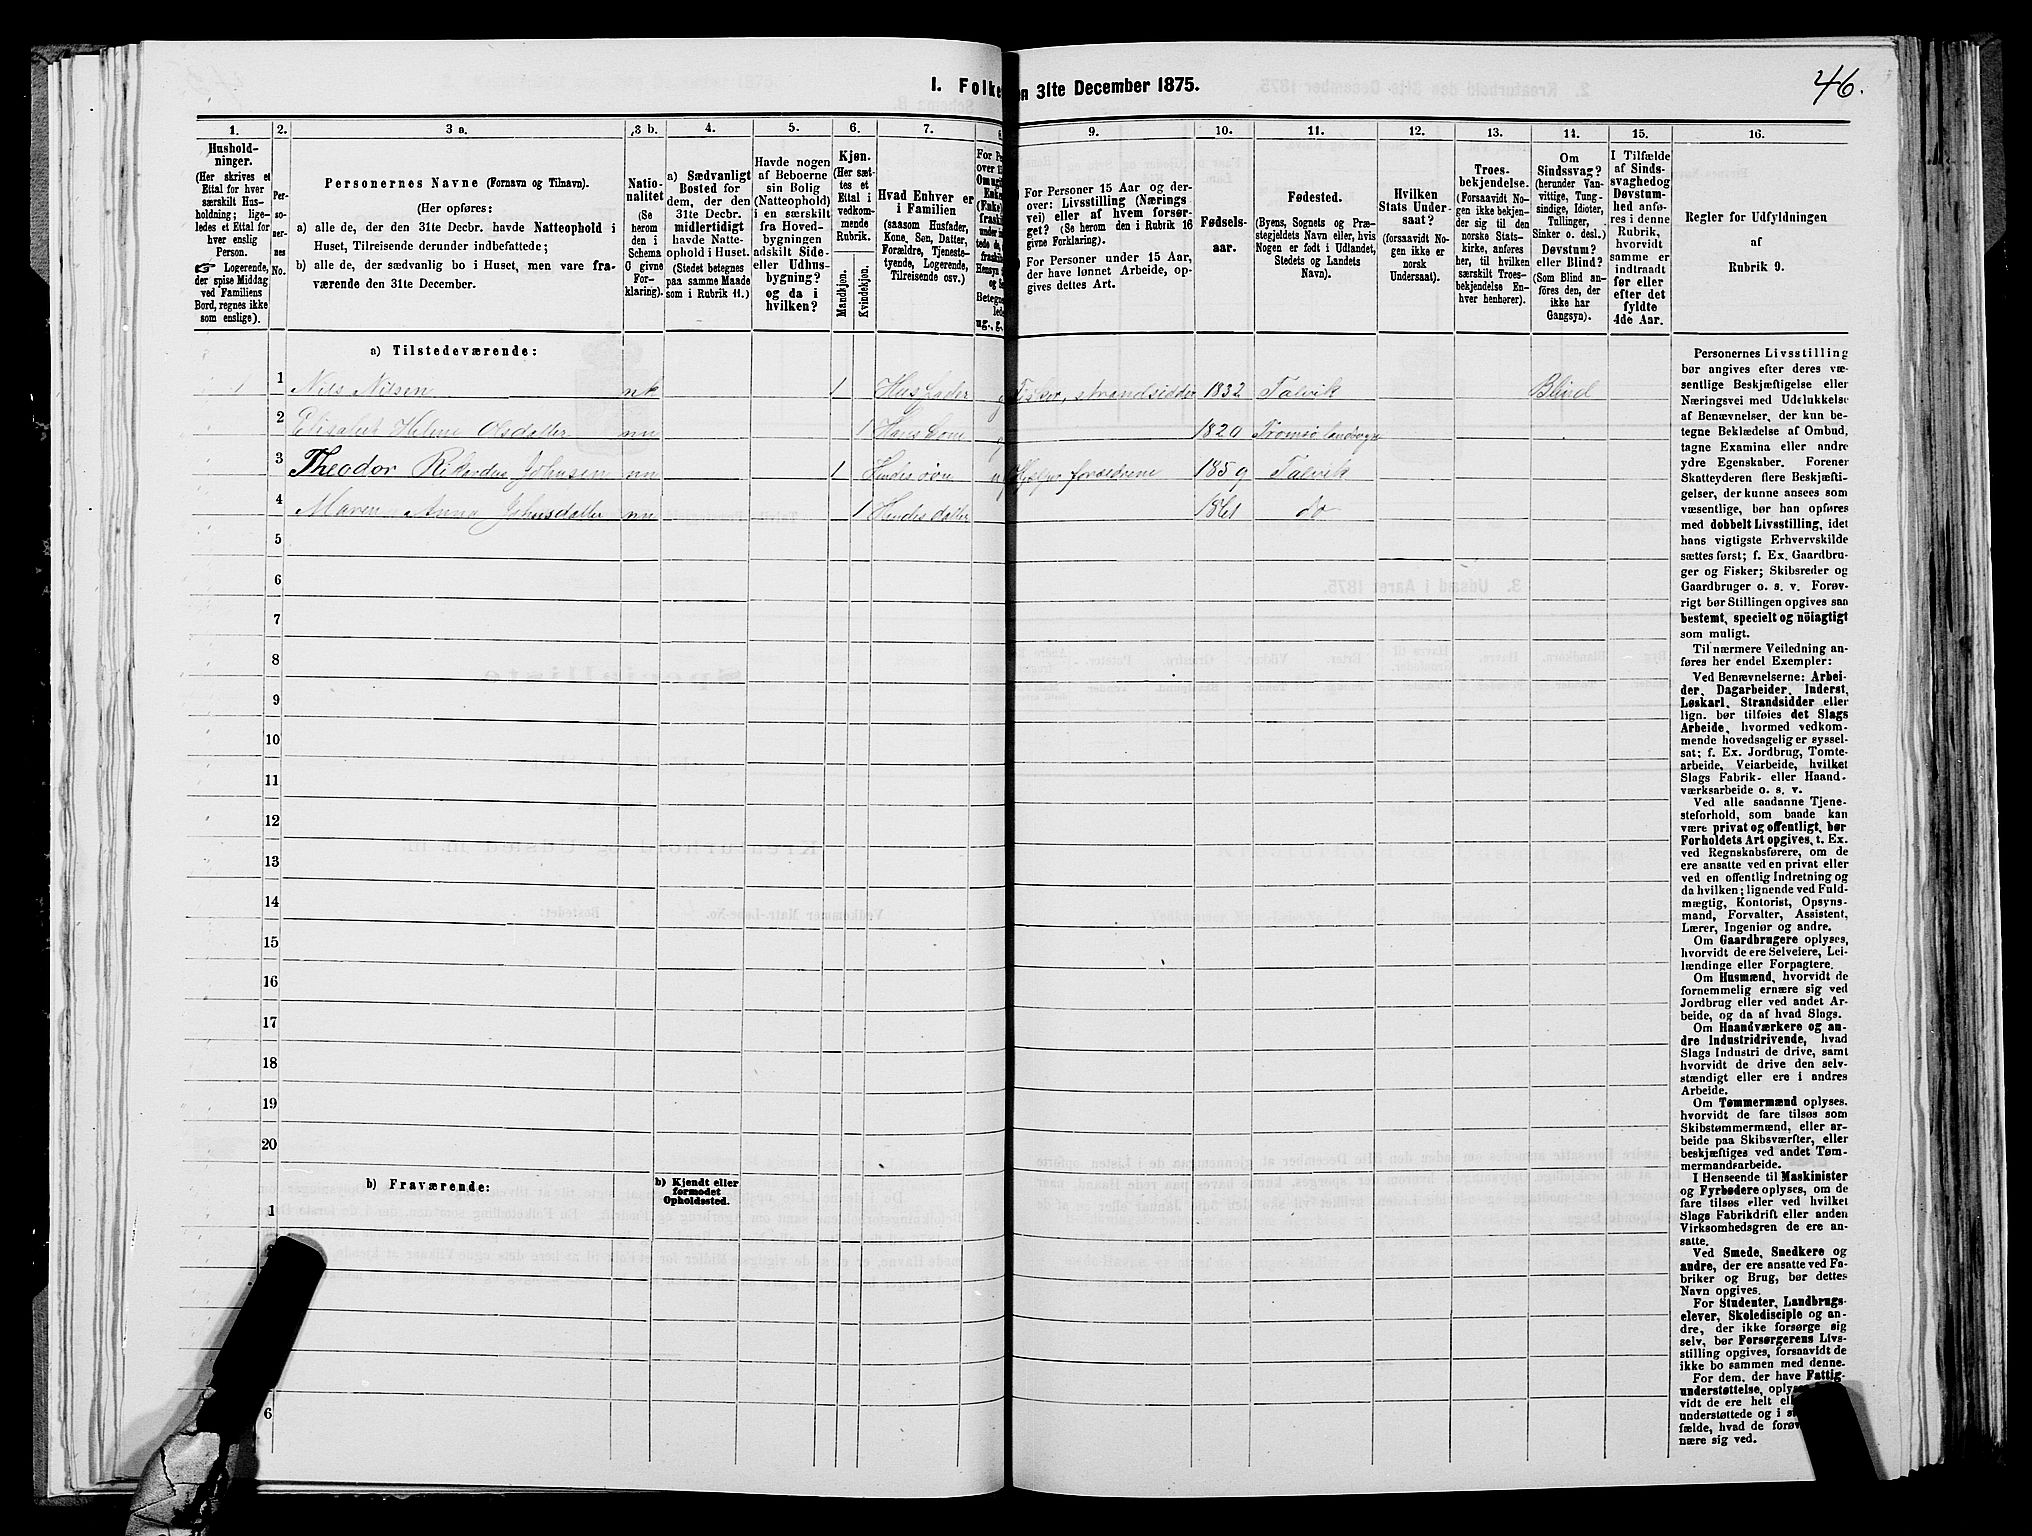 46.
I. Folke
n 31te December 1875.
1.
2.
3 a.
3 b.
4.
5.
6.
7.
9.
10.
11.
12.
13.
14.
15.
16.
Hushold-
ninger.
(Her skrives et
Ettal for hver
særskilt Hus-
holdning; lige-
ledes et Ettal for
hver enslig
Person.
☞ Logerende,
der spise Middag
ved Familiens
Bord, regnes ikke
som enslige).
Per-
so-
ner-
nes
No.
Personernes Navne (Fornavn og Tilnavn).
(Her opføres:
a) alle de, der den 31te Decbr. havde Natteophold i
Huset, Tilreisende derunder indbefattede;
b) alle de, der sædvanlig bo i Huset, men vare fra-
værende den 31te December.
Natio-
nalitet
(Se
herom
den i
Schema
C givne
For-
klaring).
a) Sædvanligt
Bosted for
dem, der den
31te Decbr.
midlertidigt
havde Natte-
ophold i Huset.
(Stedet betegnes
paa samme Maade
som i Rubrik 11.)
Havde nogen
af Beboerne
sin Bolig
(Natteophold)
i en særskilt
fra Hoved-
bygningen
adskilt Side-
eller Udhus-
bygning?
og da i
hvilken?
Kjøn.
(Her sæt-
tes et
Ettal i
vedkom-
mende
Rubrik.
Mandkjøn.
Kvindekjøn.
Hvad Enhver er
i Familien
(saasom Husfader,
Kone, Søn, Datter,
Forældre, Tjeneste-
tyende, Logerende,
Tilreisende osv.)
For Personer 15 Aar og der-
over: Livsstilling (Nærings
vei) eller af hvem forsør-
get? (Se herom den i Rubrik 16
givne Forklaring).
For Personer under 15 Aar,
der have lønnet Arbeide, op-
gives dettes Art.
Fødsels-
aar.
Fødested.
(Byens, Sognets og Præ-
stegjeldets Navn eller, hvis
Nogen er født i Udlandet,
Stedets og Landets
Navn).
Hvilken
Stats Under-
saat?
(forsaavidt No-
gen ikke er
norsk
Undersaat).
Troes-
bekjendelse.
(Forsaavidt No-
gen ikke bekjen-
der sig til den
norske Stats-
kirke, anføres
her, til hvilken
særskilt Troes-
bekjendelse En-
hver henhører).
Om
Sindssvag?
(herunder Van-
vittige, Tung-
sindige, Idioter,
Tullinger,
Sinker o. desl.)
Døvstum?
eller Blind?
(Som Blind an-
føres den, der
ikke har
Gangsyn).
I Tilfælde
af Sinds-
svaghed og
Døvstum-
hed anfø-
res i denne
Rubrik,
hvorvidt
samme er
indtraadt
før eller
efter det
fyldte
4de Aar.
Regler for Udfyldningen
af
Rubrik 9.
a) Tilstedeværende:
1 1 Nils Nilsen nk 1 Husfader g Fisker, strandsidder 1832 Talvik Blind
2 Elisabet Helene Olsdatter nn 1 Hans Kone g 1820 Tromsø landsogn
3 Theodor Rikardus Johnsen nn 1 Hendes søn u Hjelper forældrene 1859 Talvik
4 Maren Anna Johnsdatter nn 1 Hendes datter 1861 do
5
6
7
8
9
10
11
12
13
14
15
16
17
18
19
20
b) Fraværende:
b) Kjendt eller
formodet
Opholdssted.
1
6
Personernes Livsstilling
bør angives efter deres væ-
sentlige Beskjæftigelse eller
Næringsvei med Udelukkelse
af Benævnelser, der kun be-
tegne Beklædelse af Ombud,
tagne Examina eller andre
ydre Egenskaber. Forener
Skatteyderen flere Beskjæfti-
gelser, der kunne ansees som
væsentlige, bør han opføres
med dobbelt Livsstilling, idet
hans vigtigste Erhvervskilde
sættes først; f. Ex. Gaardbru-
ger og Fisker; Skibsreder og
Gaardbruger o. s. v. Forøv-
rigt bør Stillingen opgives saa
bestemt, specielt og nöiagtigt
som muligt.
Til nærmere Veiledning an-
føres her endel Exempler:
Ved Benævnelserne: Arbei-
der, Dagarbeider, Inderst,
Løskarl, Strandsidder eller
lign. bør tilføies det Slags
Arbeide, hvormed vedkom-
mende hovedsagelig er syssel-
sat; f. Ex. Jordbrug, Tomte-
arbeide, Veiarbeide, hvilket
Slags Fabrik- eller Haand-
værksarbeide o. s. v.
Ved alle saadanne Tjene-
steforhold, som baade kan
være privat og offentligt, bør
Forholdets Art opgives, t. Ex.
ved Regnskabsførere, om de
ere ansatte ved en privat eller
ved en offentlig Indretning og
da hvilken; lignende ved Fuld-
mægtig, Kontorist, Opsyns-
mand, Forvalter, Assistent,
Lærer, Ingeniør og andre.
Om Gaardbrugere oplyses,
hvorvidt de ere Selveiere, Lei-
lændinge eller Forpagtere.
Om Husmænd, hvorvidt de
fornemmelig ernære sig ved
Jordbrug eller ved andet Ar-
beide, og da af hvad Slags.
Om Haandværkere og an-
dre Industridrivende, hvad
Slags Industri de drive, samt
hvorvidt de drive den selv-
stændigt eller ere i andres
Arbeide.
Om Tømmermænd oplyses,
hvorvidt de fare tilsøs som
Skibstømmermænd, eller ar-
beide paa Skibsværfter, eller
beskjæftiges ved andet Tøm-
mermandsarbeide.
I Henseende til Maskinister
og Fyrbødere oplyses, om de
fare tilsøs eller ved hvilket
Slags Fabrikdrift eller anden
Virksomhedsgren de ere an-
satte.
Ved Smede, Snedkere og
andre, der ere ansatte ved Fa-
briker og Brug, bør dettes
Navn opgives.
For Studenter, Landbrugs-
elever, Skoledisciple og an-
dre, der ikke forsørge sig
selv, bør Forsørgerens Livs-
stilling opgives, forsaavidt de
ikke bo sammen med denne.
For dem, der have Fattig-
understøttelse, oplys
vidt de ere helt el
understøttede og i s
fælde, hvad de forøv
nære sig ved.